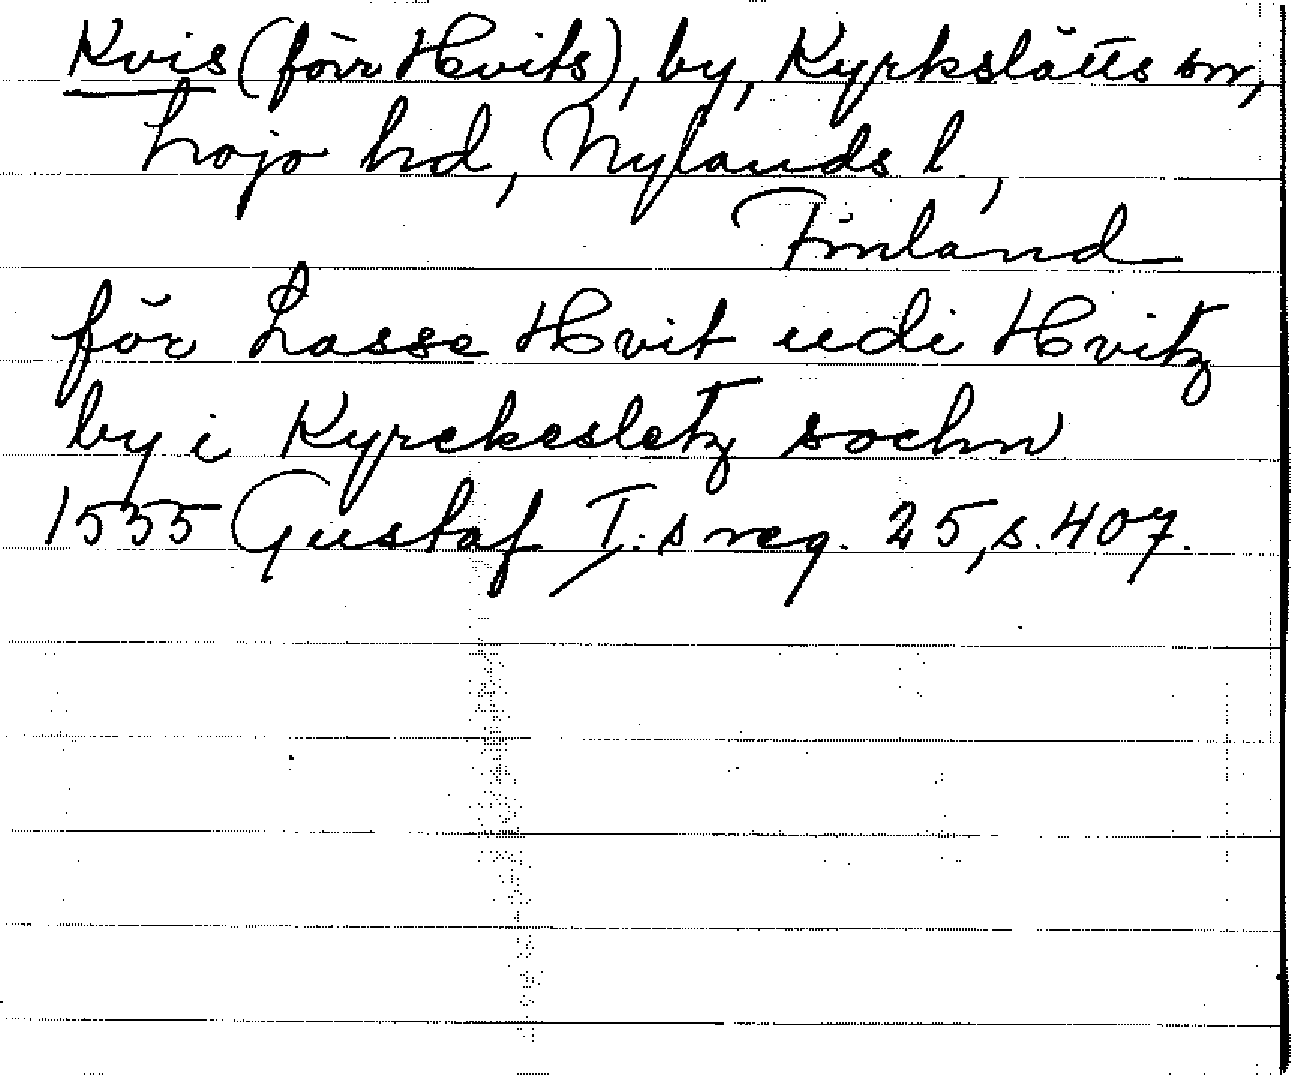 Kvis (förr Hvits), by, Kyrkslätts sn,
Lojo hd, Nylands l,
Finland
för Lasse Hvit udi Hvitz
by i Kyrckesletz sochn
1555 Gustaf I:s reg. 25, s. 407.